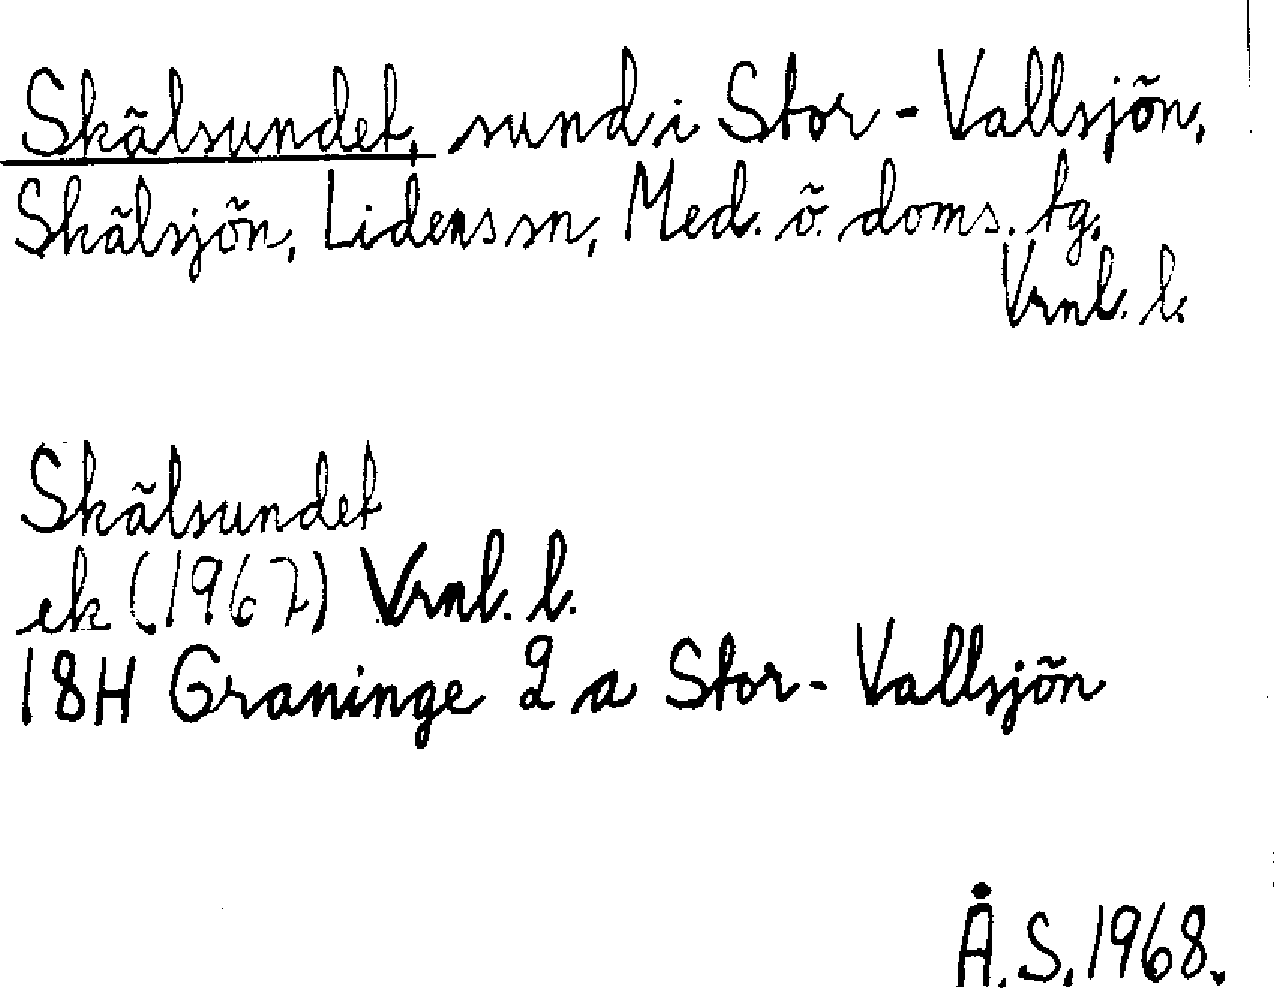 Skälsundet, sund i Stor-Vallsjön,
Skälsjön, Lidens sn, Med. ö. doms. tg.
Vrnl. l.
Skälsundet
ek (1967) Vrnl. l.
18H Graninge 2 a Stor-Vallsjön
Å.S. 1968.